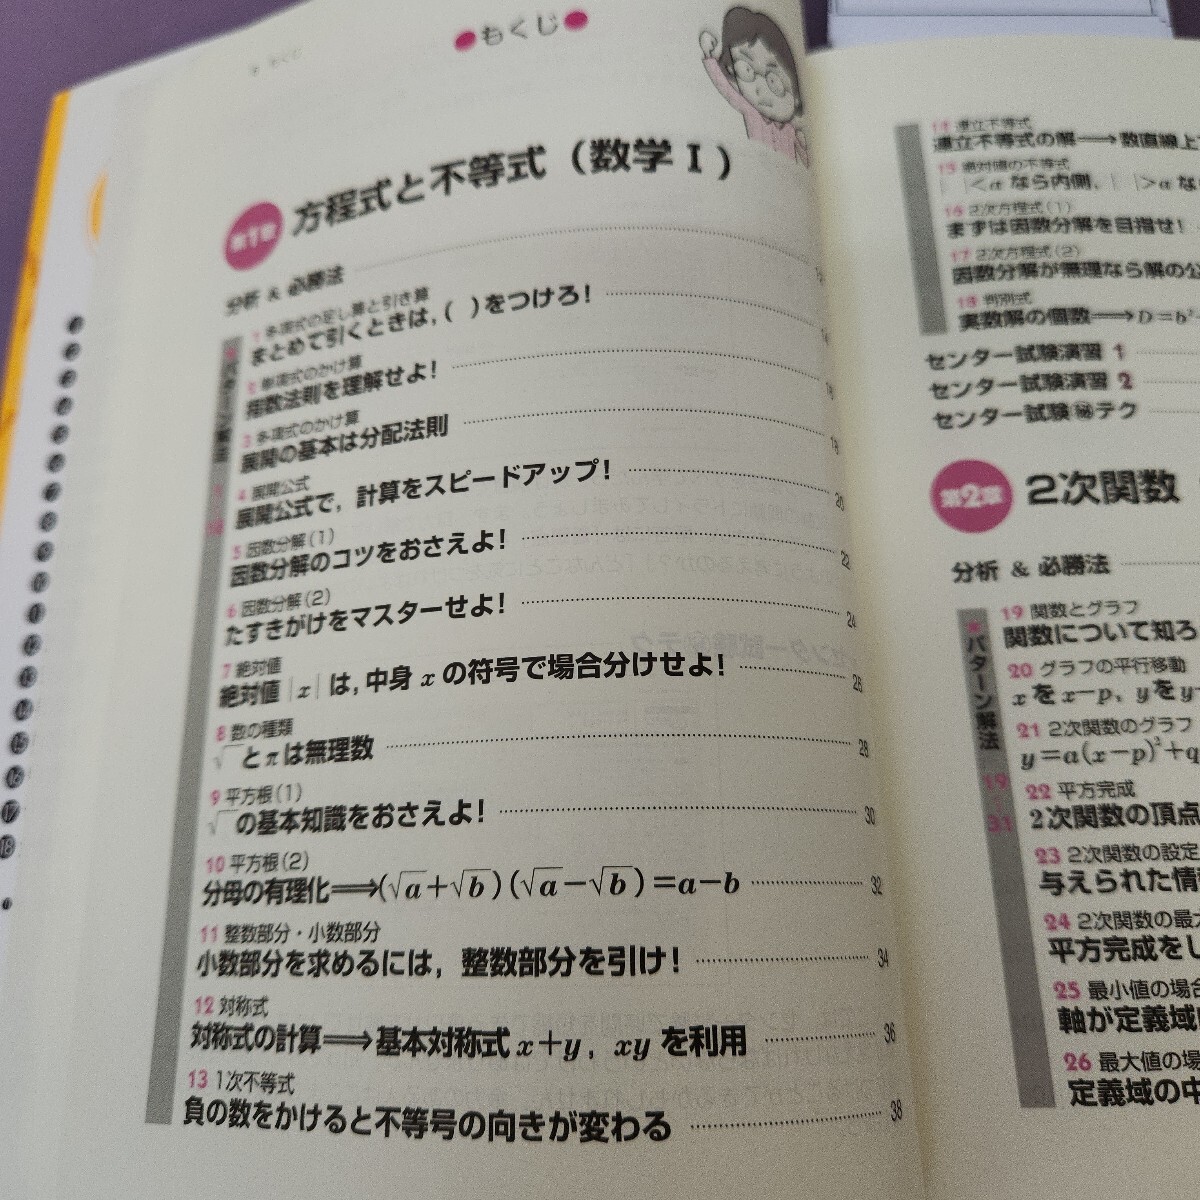 ●もくじ●
第1章 方程式と不等式（数学Ⅰ）
分析 & 必勝法
パターン解法
1 多項式の足し算と引き算
まとめて引くときは,( )をつけろ!
14
2 単項式のかけ算
指数法則を理解せよ!
16
3 多項式のかけ算
展開の基本は分配法則
18
4 展開公式
展開公式で, 計算をスピードアップ!
20
5 因数分解(1)
因数分解のコツをおさえよ!
22
6 因数分解(2)
たすきがけをマスターせよ!
24
7 絶対値
絶対値|x|は, 中身 x の符号で場合分けせよ!
26
8 数の種類
√ とπは無理数
28
9 平方根(1)
√ の基本知識をおさえよ!
30
10 平方根(2)
分母の有理化⟹(√a+√b)(√a−√b)=a−b
32
11 整数部分・小数部分
小数部分を求めるには, 整数部分を引け!
34
12 対称式
対称式の計算⟹基本対称式 x+y, xy を利用
36
13 1次不等式
負の数をかけると不等号の向きが変わる
38
14 連立不等式
連立不等式の解⟹数直線上
15 絶対値の不等式
| |<a なら内側, | |>a な
16 2次方程式(1)
まずは因数分解を目指せ!
17 2次方程式(2)
因数分解が無理なら解の公
18 判別式
実数解の個数⟹D=b²
センター試験演習 1
センター試験演習 2
センター試験㊙テク
第2章 2次関数
分析 & 必勝法
パターン解法
19
31
19 関数とグラフ
関数について知ろ
20 グラフの平行移動
x を x−p, y を y
21 2次関数のグラフ
y=a(x−p)²+q
22 平方完成
2次関数の頂点
23 2次関数の設定
与えられた情
24 2次関数の最
平方完成をし
25 最小値の場合
軸が定義域
26 最大値の場
定義域の中